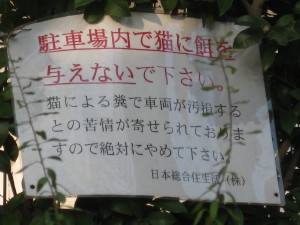 駐車場内で猫に餌を
与えないで下さい。
猫による糞で車両が汚損する
との苦情が寄せられておりま
すので絶対にやめて下さい
日本総合住生活（株）